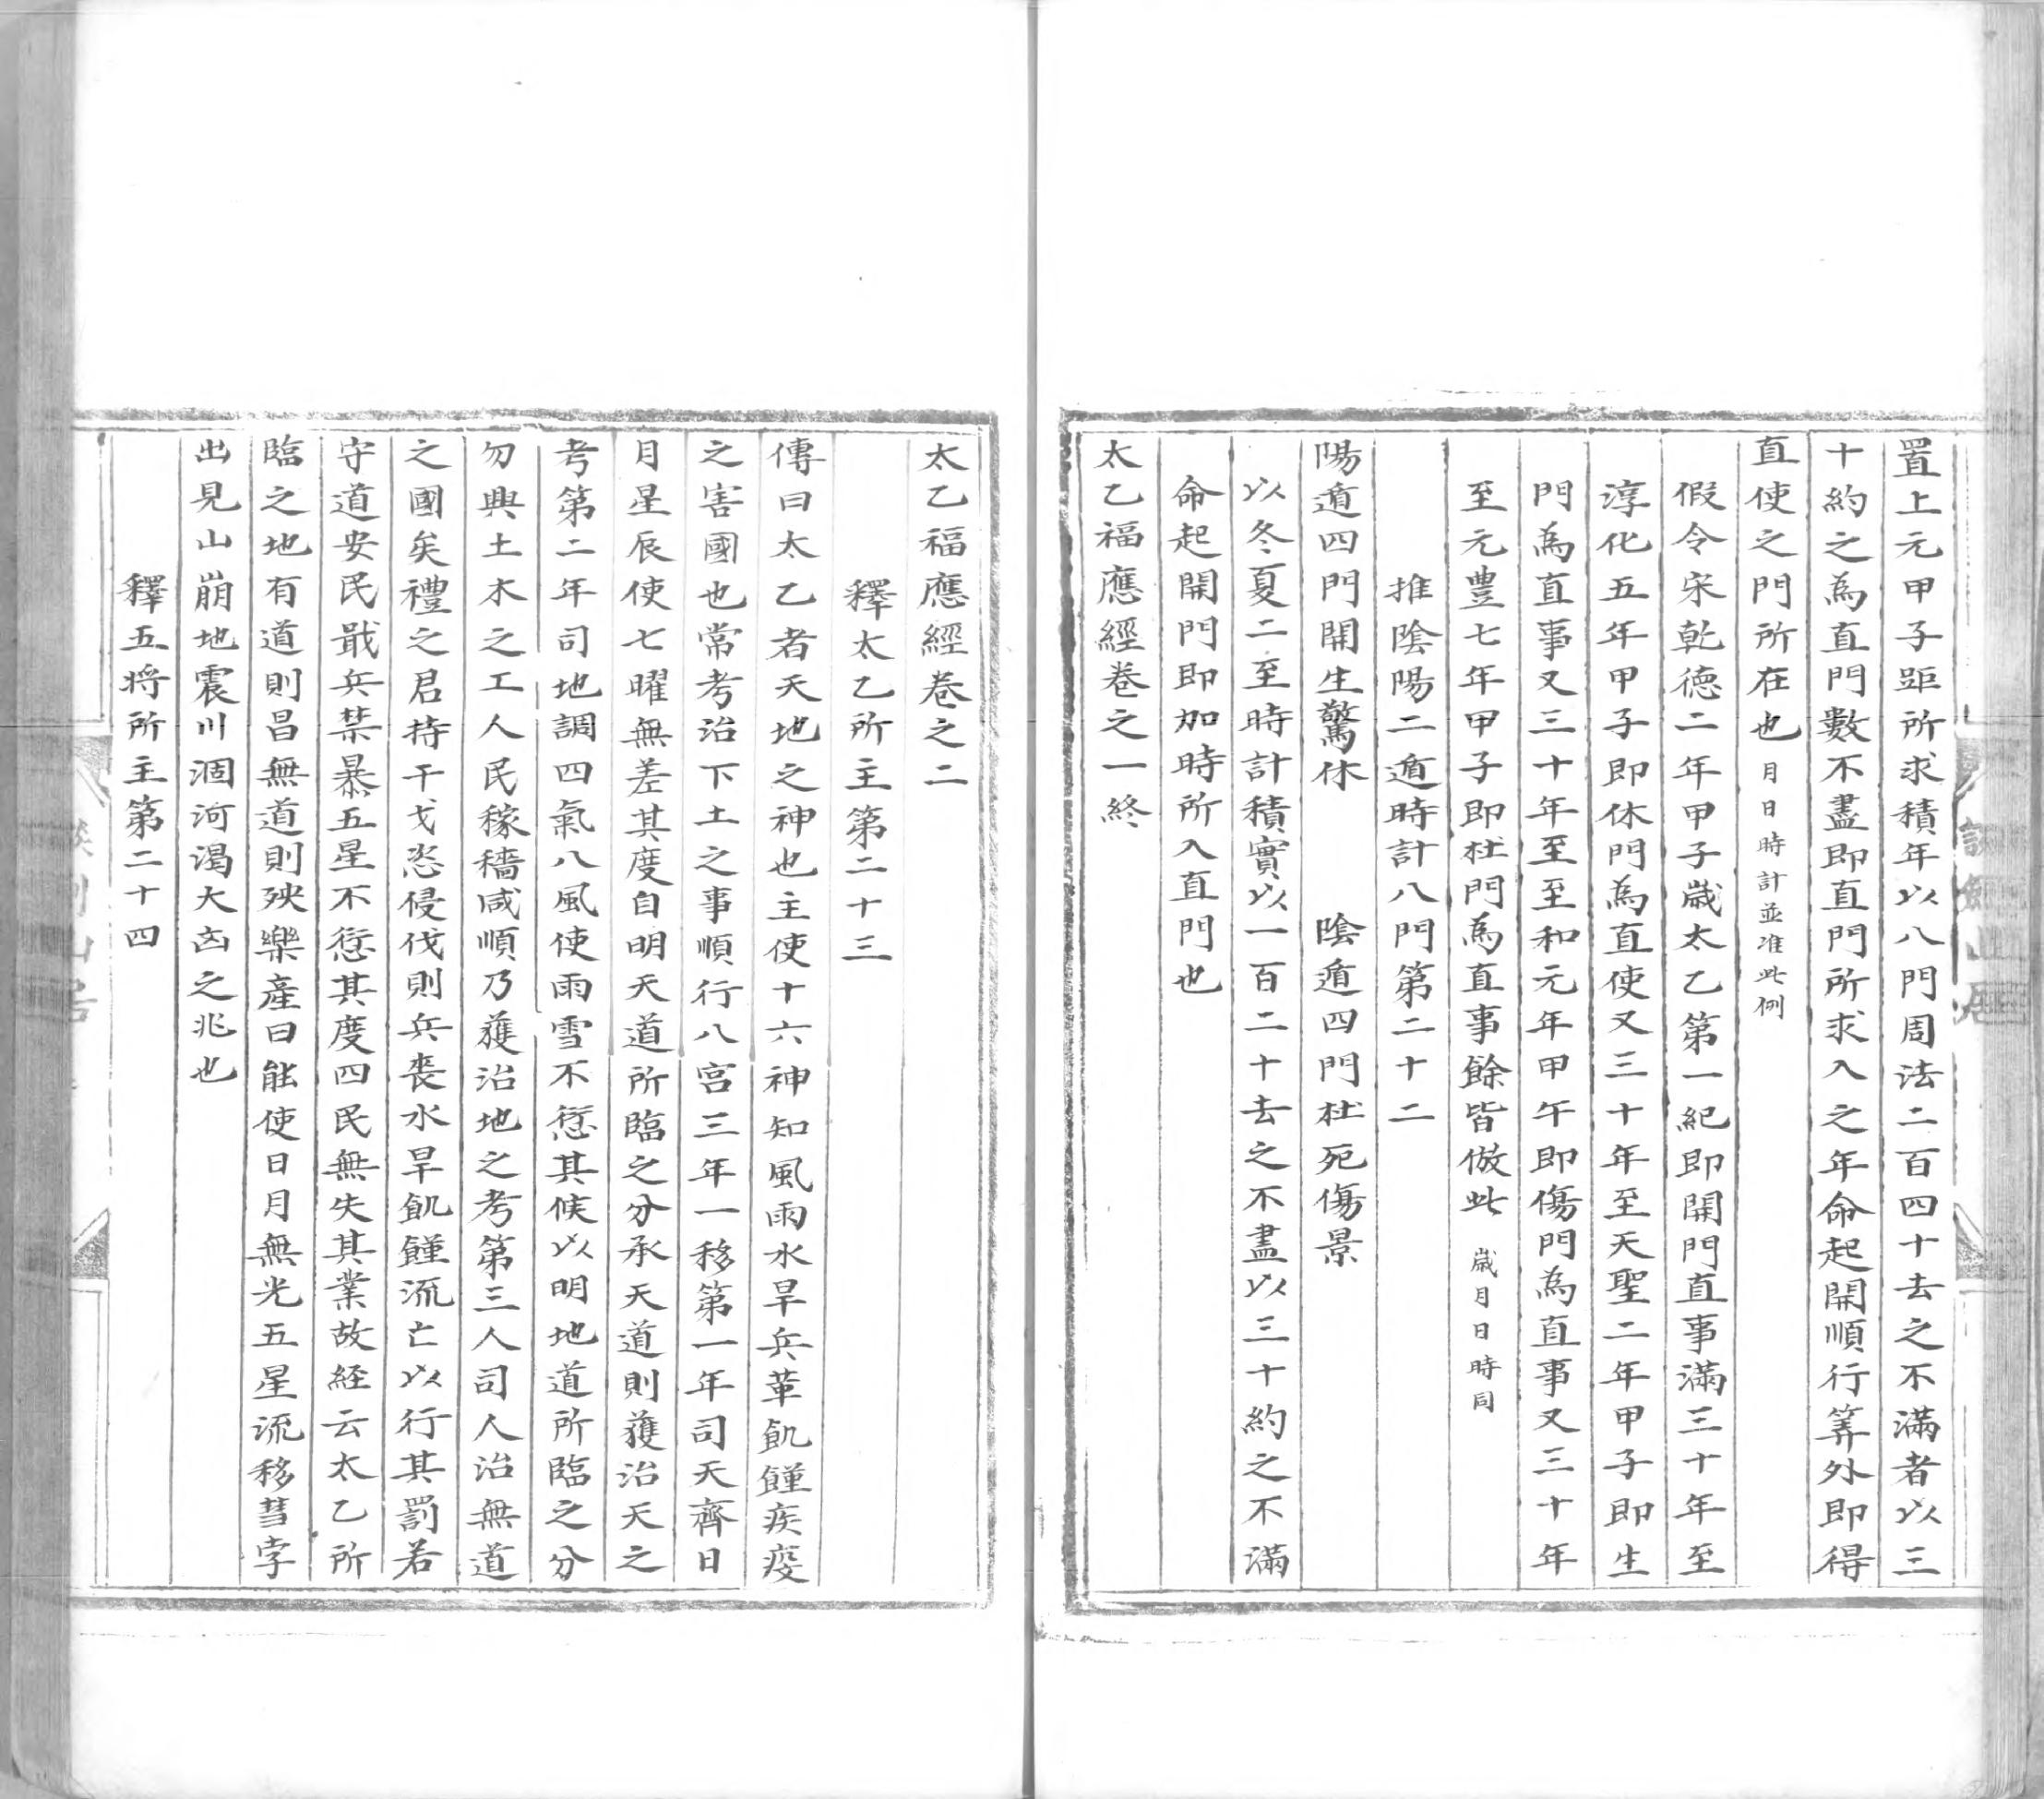 置上元甲子距所求積年以八門周法二百四十去之不滿者以三
十約之為直門數不盡即直門所求入之年命起開順行筭外即得
直使之門所在也月日時計並准此例
假令宋乾德二年甲子歲太乙第一紀即開門直事滿三十年至
淳化五年甲子即休門為直使又三十年至天聖二年甲子即生
門為直事又三十年至至和元年甲午即傷門為直事又三十年
至元豊七年甲子即杜門為直事餘皆倣此 歲月日時同
推陰陽二遁時計八門第二十二
陽遁四門開生驚休 陰遁四門杜死傷景
以冬夏二至時計積實以一百二十去之不盡以三十約之不滿
命起開門即加時所入直門也
太乙福應經卷之一終
太乙福應經卷之二
釋太乙所主第二十三
傳曰太乙者天地之神也主使十六神知風雨水旱兵革飢饉疾疫
之害國也常考治下土之事順行八宮三年一移第一年司天齊日
月星辰使七曜無差其度自明天道所臨之分承天道則獲治天之
考第二年司地調四氣八風使雨雪不愆其候以明地道所臨之分
勿興土木之工人民稼穡咸順乃獲治地之考第三人司人治無道
之國矣禮之君持干戈恣侵伐則兵喪水旱飢饉流亡以行其罰若
守道安民戢兵禁暴五星不愆其度四民無失其業故経云太乙所
臨之地有道則昌無道則殃樂產曰能使日月無光五星流移彗孛
出見山崩地震川涸河渴大凶之兆也
釋五将所主第二十四